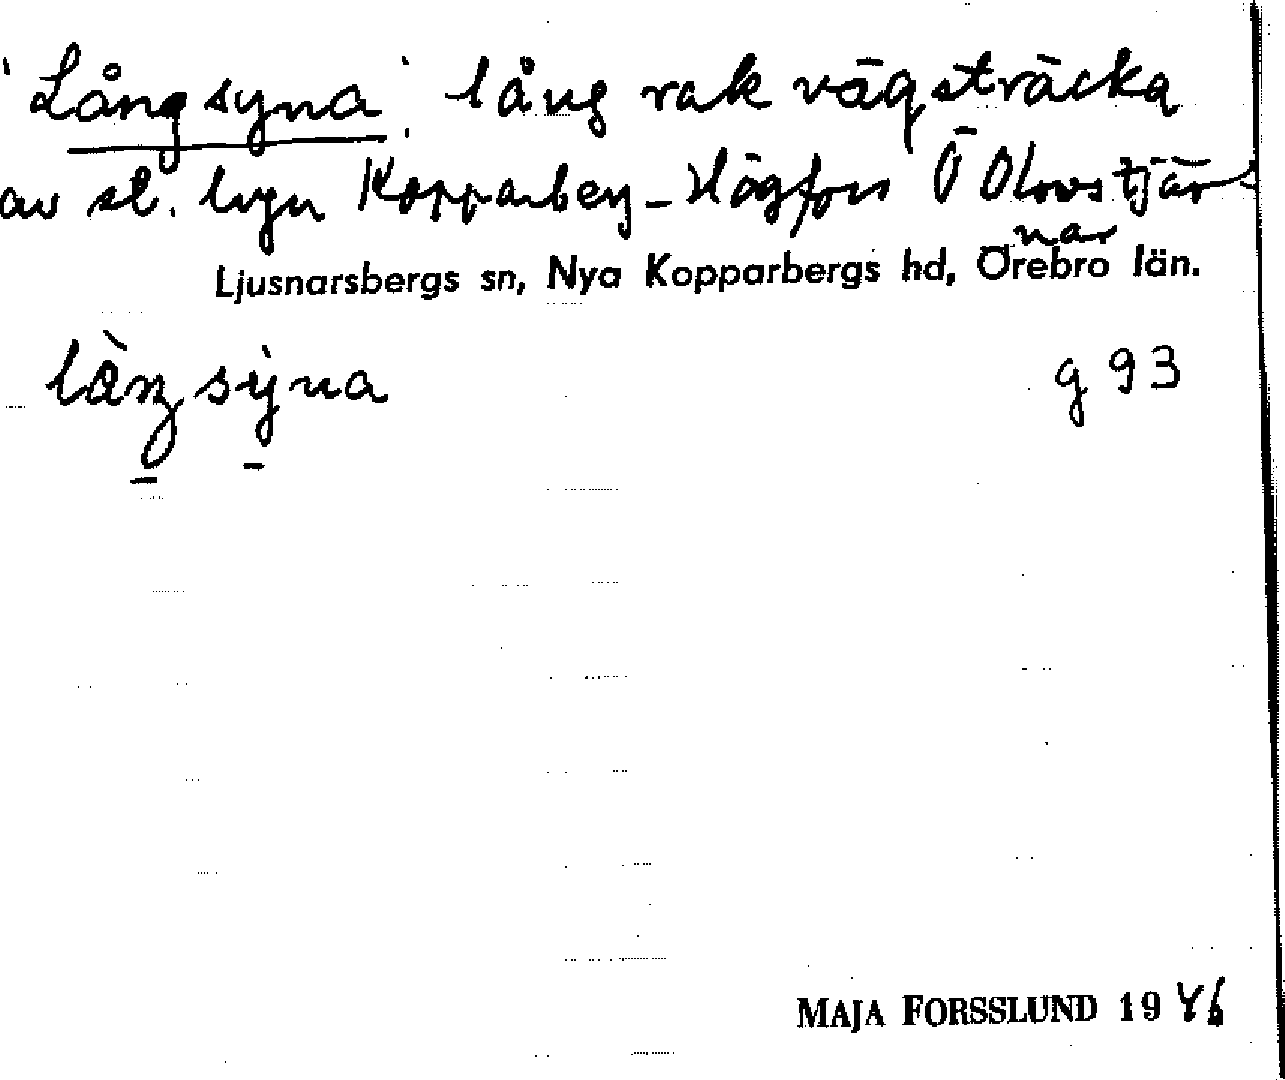 'Långsyna': lång rak vägsträcka
av st. lvgn Kopparberg-Högfors Ö Olovstjär
nar
Ljusnarsbergs sn, Nya Kopparbergs hd, Örebro län.
g 93
MAJA FORSSLUND 1946